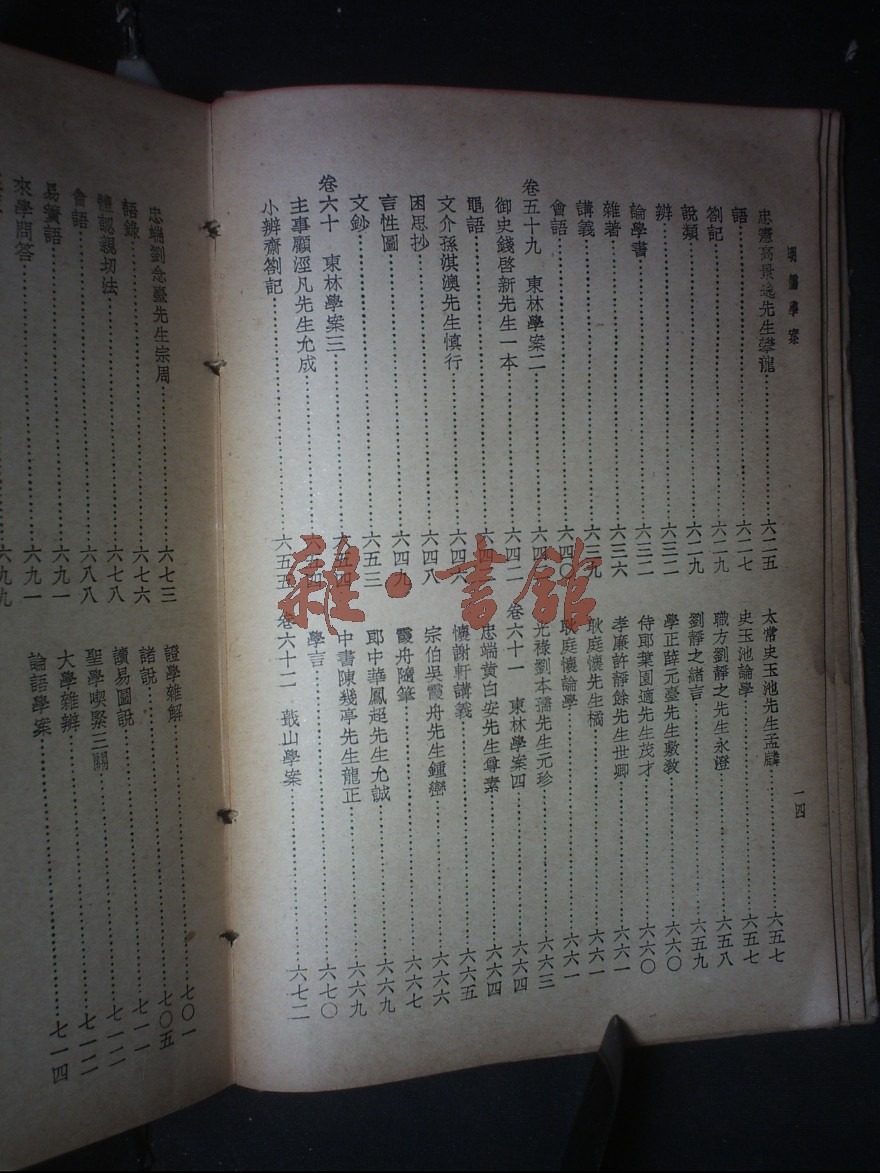 明儒學案
一四
忠憲高景逸先生攀龍……六二五
語……六二七
劄記……六二九
說類……六二九
辨……六三二
論學書……六三二
雜著……六三六
講義……六三九
會語……六四〇
卷五十九　東林學案二……六四二
御史錢啓新先生一本……六四二
黽語……六四三
文介孫淇澳先生慎行……六四六
困思抄……六四八
言性圖……六四九
文鈔……六五三
卷六十　東林學案三……六五四
主事顧涇凡先生允成……六五四
小辨齋劄記……六五五
太常史玉池先生孟麟……六五七
史玉池論學……六五七
職方劉靜之先生永澄……六五八
劉靜之緒言……六五九
學正薛元臺先生敷教……六六〇
侍郎葉園適先生茂才……六六〇
孝廉許靜餘先生世卿……六六一
耿庭懷先生橘……六六一
耿庭懷論學……六六一
光祿劉本孺先生元珍……六六三
卷六十一　東林學案四……六六四
忠端黃白安先生尊素……六六四
懷謝軒講義……六六五
宗伯吳霞舟先生鍾巒……六六六
霞舟隨筆……六六七
郎中華鳳超先生允誠……六六九
中書陳幾亭先生龍正……六六九
學言……六七〇
卷六十二　蕺山學案……六七二
忠端劉念臺先生宗周……六七三
語錄……六七六
體認親切法……六七八
會語……六八八
易簀語……六九一
來學問答……六九一
六九九
證學雜解……七〇一
諸說……七〇五
讀易圖說……七一一
聖學喫緊三關……七一二
大學雜辨……七一二
論語學案……七一四
雜·書館